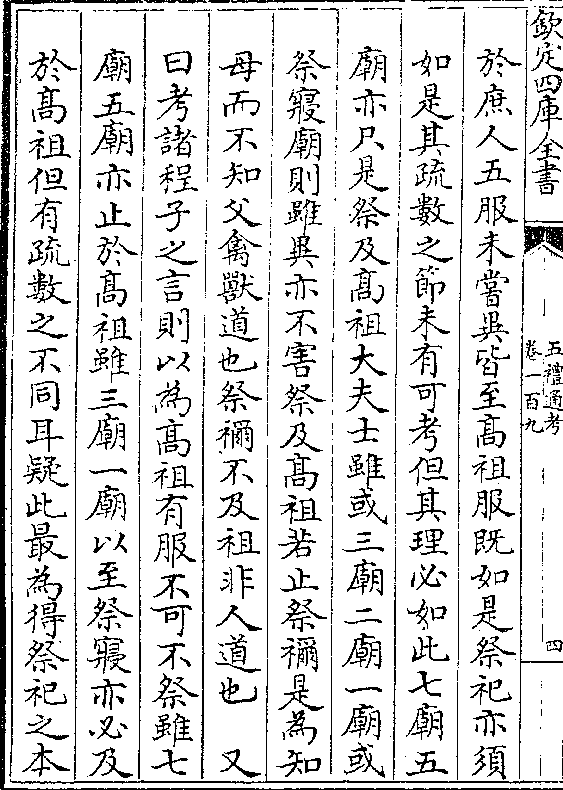 欽定四庫全書
五禮通考
卷一百九
四
於庶人五服未嘗異皆至髙祖服既如是祭祀亦須
如是其疏數之節未有可考但其理必如此七廟五
廟亦只是祭及髙祖大夫士雖或三廟二廟一廟或
祭寢廟則雖異亦不害祭及髙祖若止祭禰是為知
母而不知父禽獸道也祭禰不及祖非人道也　又
曰考諸程子之言則以為髙祖有服不可不祭雖七
廟五廟亦止於髙祖雖三廟一廟以至祭寢亦必及
於髙祖但有疏數之不同耳疑此最為得祭祀之本